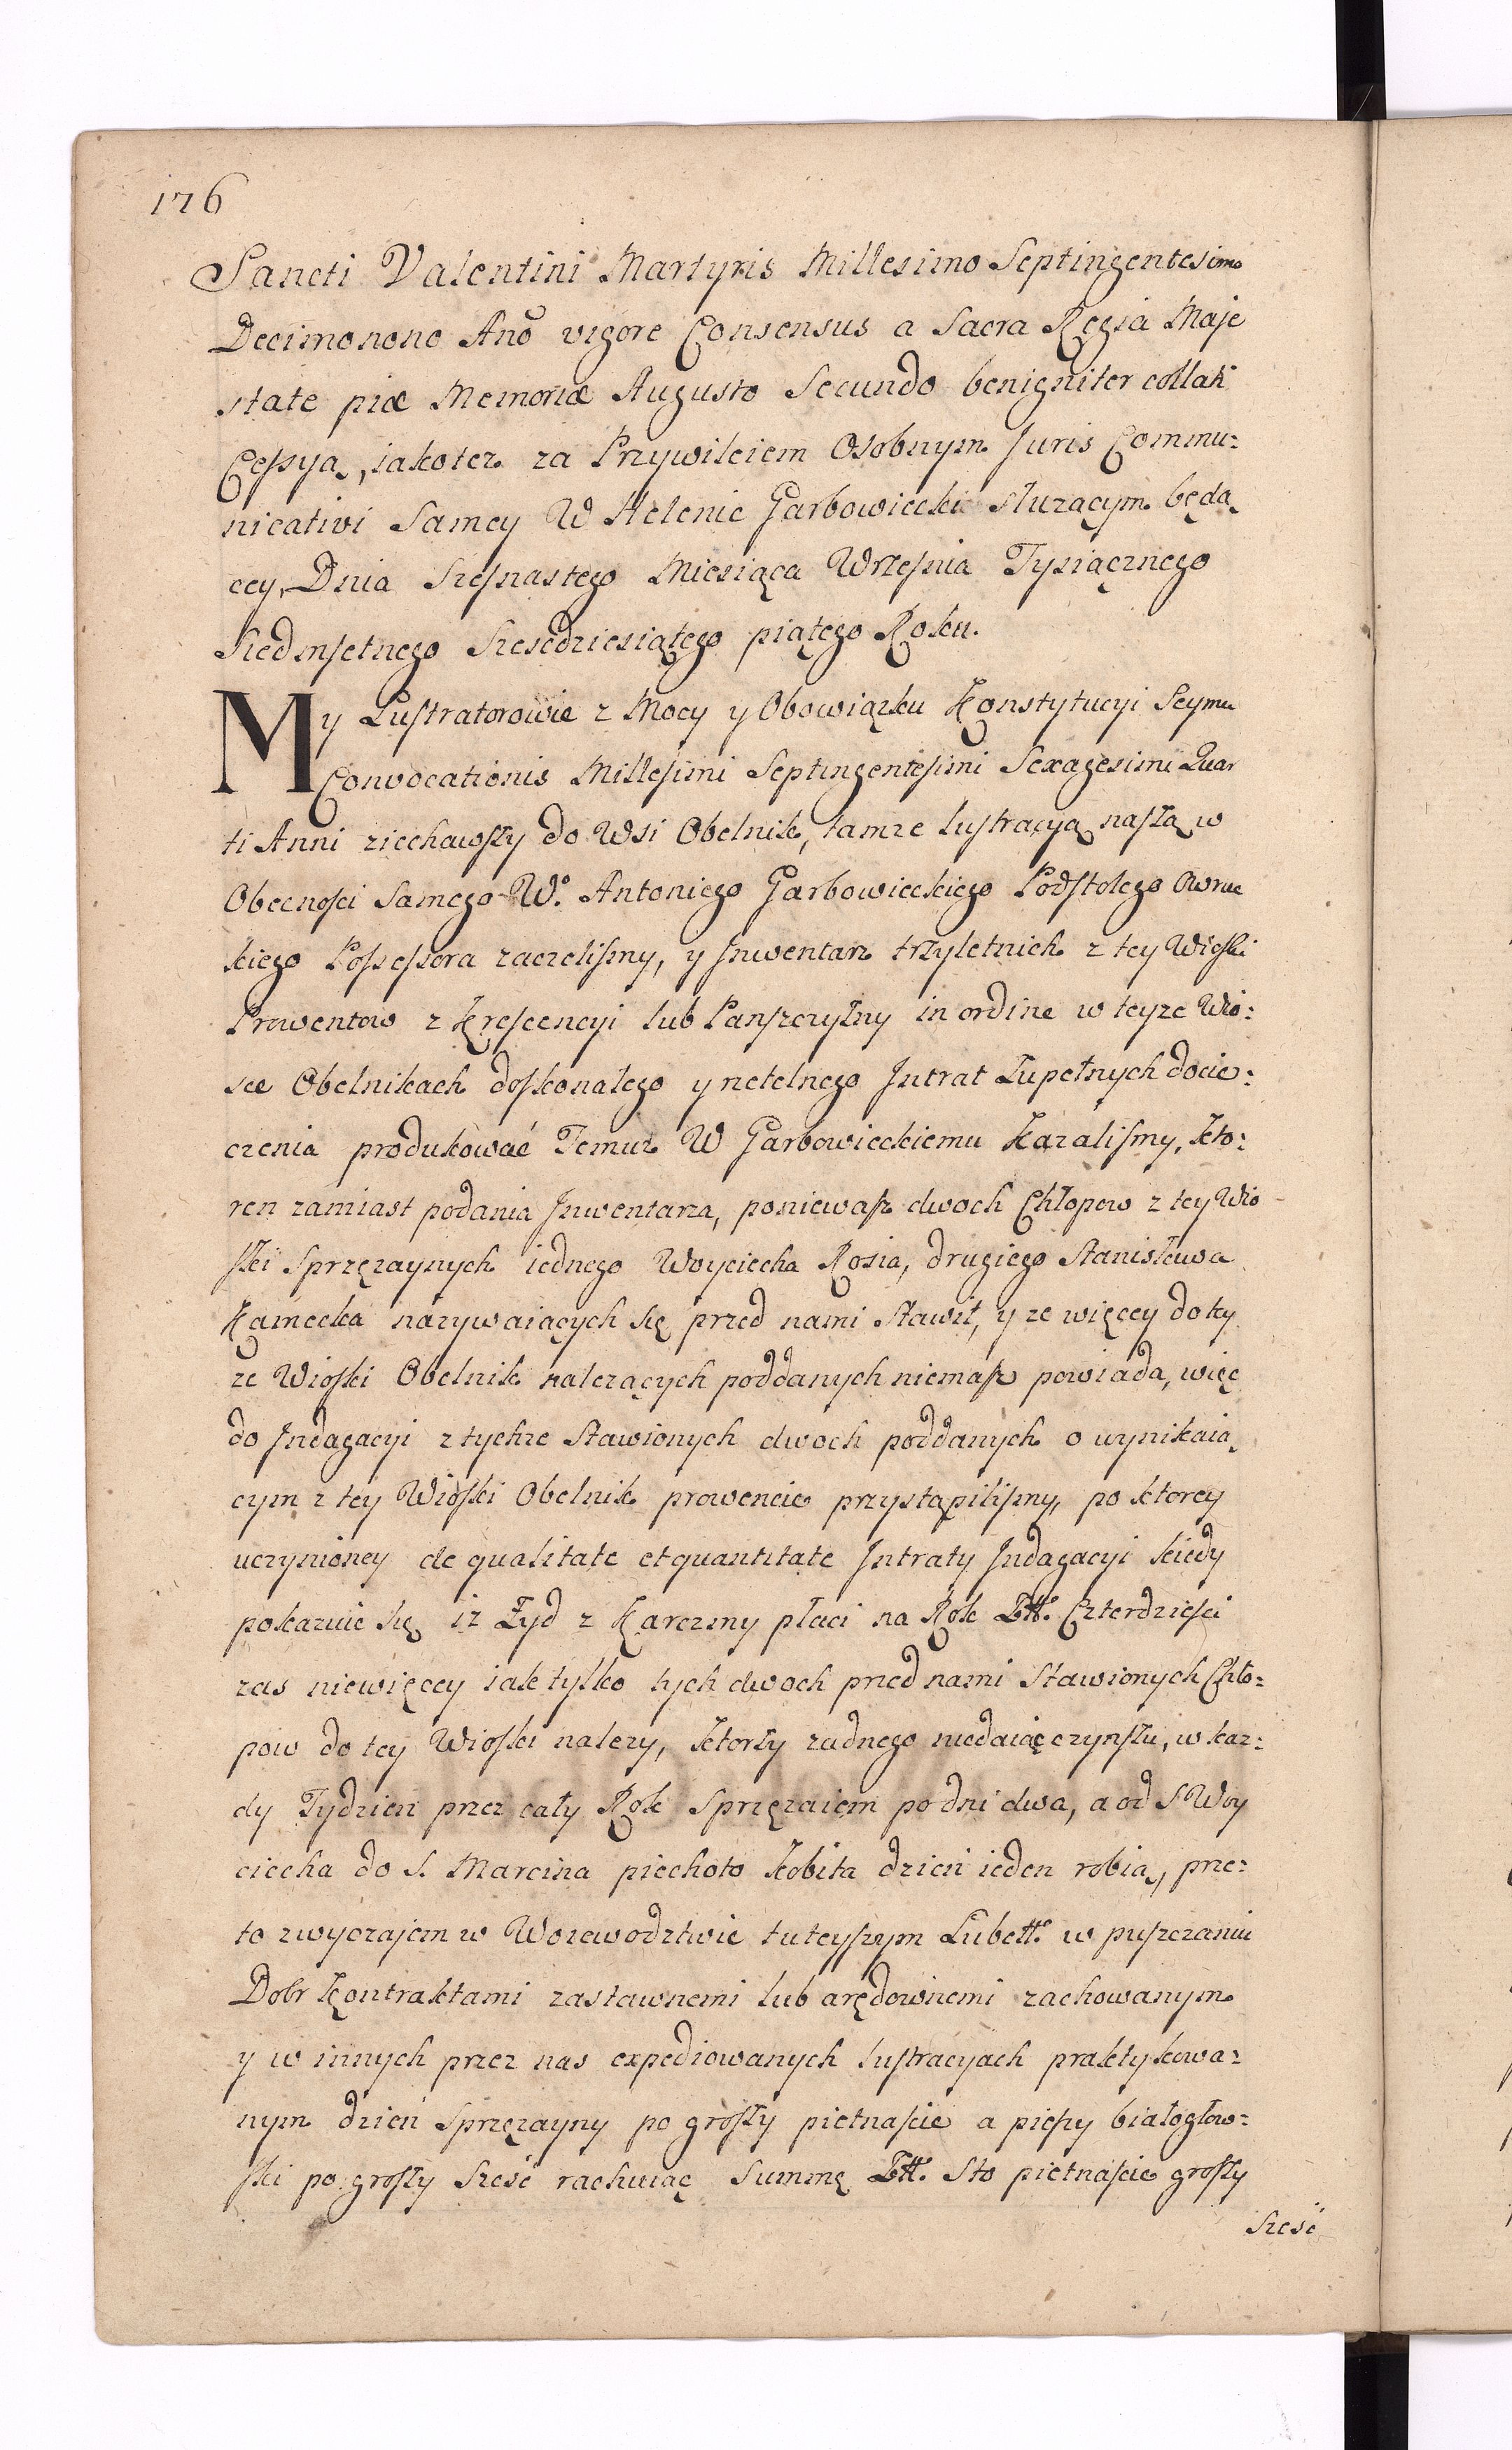 176
Sancti Valentini Martyris Millesimo Septingentesimo
Decimonono Anō vigore Consensus a Sacra Regia Maje
state piæ Memoriæ Augusto Secundo benigniter collati
Cessyą, iakotez za Przywileiem Osobnym Juris Commu:
nicativi Samey W Helenie Garbowieckie służącym będą
cey, Dnia Szesnastego Miesiąca Wrzesnia Tysiącznego
Siedmsetnego Szescdziesiątego piątego Roku.
My Lustratorowie z Mocy y Obowiązku Konstytucyi Seymu
Convocationis Millesimi Septingentesimi Sexagesimi Quar
ti Anni ziechawszy do Wsi Obelnik, tamze lustracyą naszą w
Obecnosci Samego W.º Antoniego Garbowieckiego Podstolego Owruc
kiego Possessora zaczelismy, y Inwentarz trzyletnich z tey Wioski
Prowentow z Krescencyi lub Panszczyzny in ordine w teyze Wio:
sce Obelnikach doskonałego y rzetelnego Intrat Zupełnych docie:
czenia produkować Temuz W Garbowieckiemu Kazalismy, Kto:
ren zamiast podania Inwentarza, poniewasz dwoch Chłopow z tey Wio
ski Sprzęzaynych iednego Woyciecha Rosia, drugiego Stanisława
Kamecka nazywaiących się przed nami Stawił, y ze więcey do tey
ze Wioski Obelnik nalezących poddanych niemasz powiada, więc
do Indagacyi z tychze Stawionych dwoch poddanych o wynikaią
cym z tey Wioski Obelnik prowencie przystąpilismy, po ktorey
uczynioney de qualitate et quantitate Intraty Indagacyi kiedy
pokazuie się iz Zyd z Karczmy płaci na Rok Złł. Czterdziesci
zas niewięcey iak tylko tych dwoch przed nami Stawionych Chło:
pow do tey Wioski nalezy, ktorzy zadnego niedaiąc czynszu, w kaz:
dy Tydzien przez cały Rok Sprzęzaiem po dni dwa, a od S Woy
ciecha do S. Marcina piechoto kobita dzień ieden robią, prze:
to zwyczajem w Woiewodztwie tuteyszym Lubełł. w puszczaniu
Dobr Kontraktami zastawnemi lub arędownemi zachowanym
y w innych przez nas expediowanych lustracyach praktykowa:
nym dzień Sprzęzayny po groszy pietnascie a pieszy białogłow:
ski po groszy Sześć rachuiąc Summę Złł. Sto pietnascie groszy
Sześć